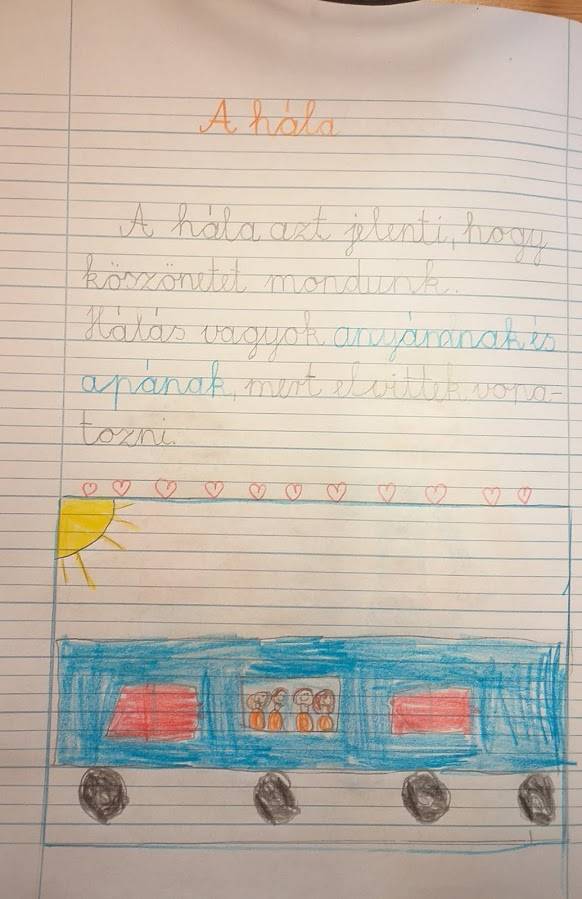 A hála
A hála azt jelenti, hogy
köszönetet mondunk.
Hálás vagyok anyámnak és
apának, mert elvittek vona-
tozni.